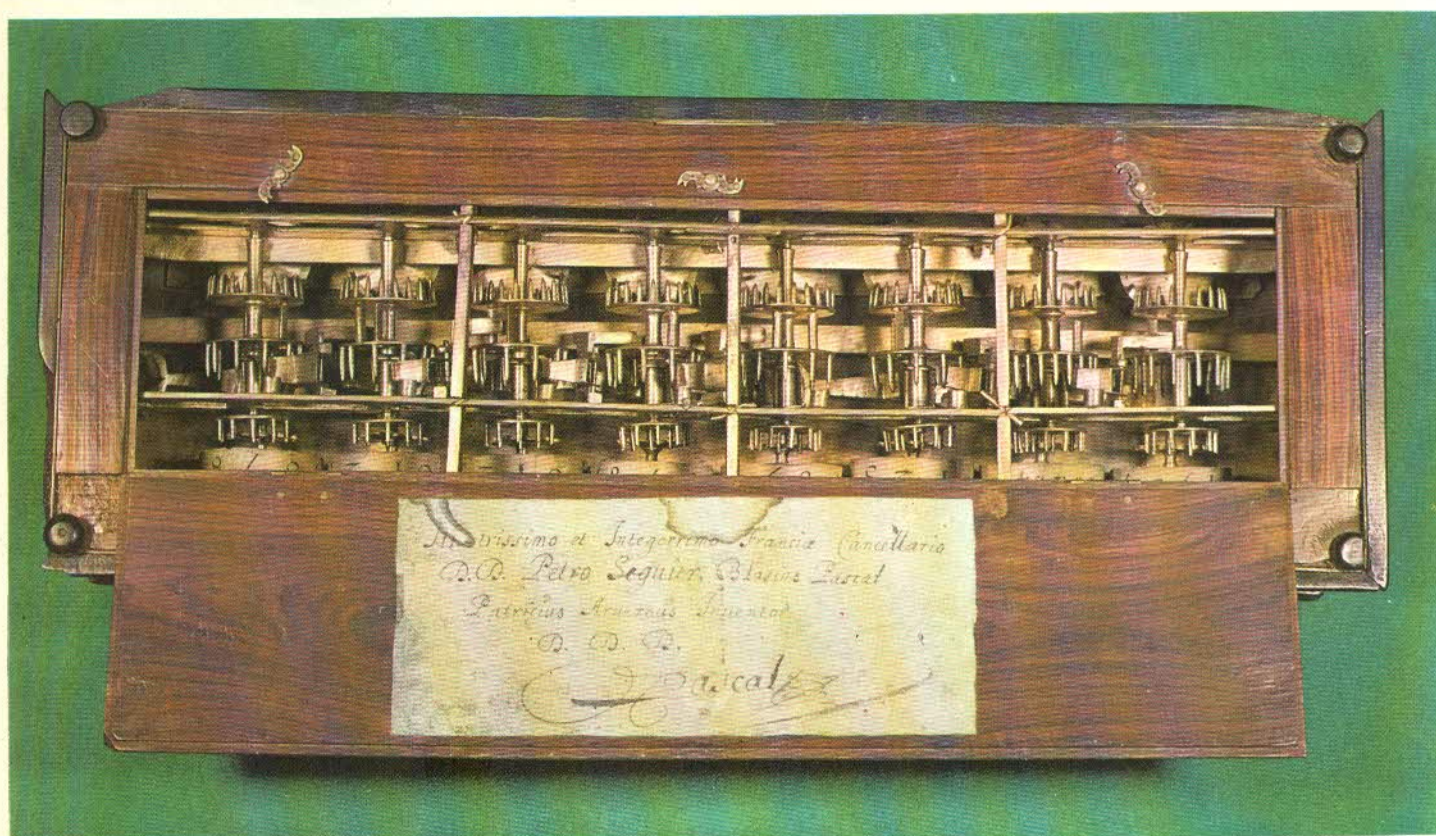 Illustrissimo et Integerrimo Franciæ Cancellario
D.D. Petro Seguier, Blasius Pascal
Patricius Arvernus Inventor
D. D. D.
Pascal